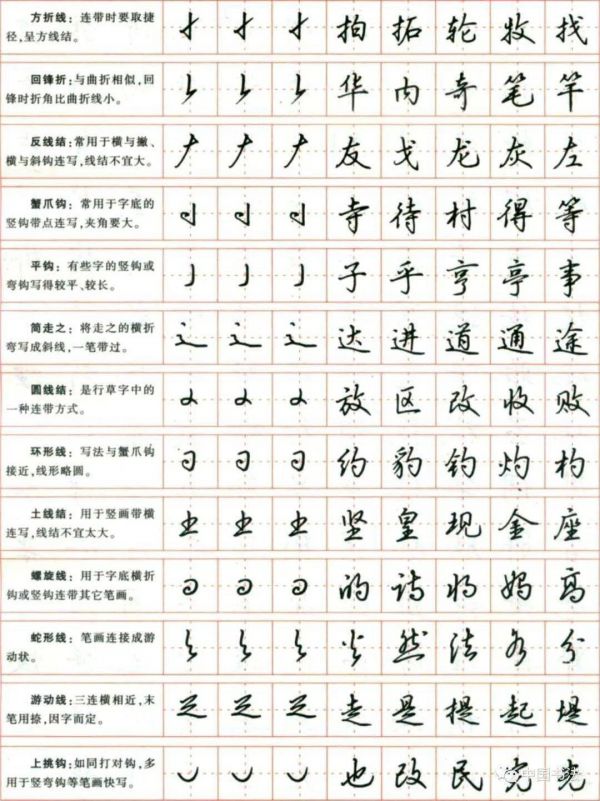 方折线：连带时要取捷
径，呈方线结。
拍 拓 轮 牧 找
回锋折：与曲折相似，回
锋时折角比曲折线小。
华 内 奇 笔 竿
反线结：常用于横与撇、
横与斜钩连写，线结不宜大。
友 戈 龙 灰 左
蟹爪钩：常用于字底的
竖钩带点连写，夹角要大。
寺 待 村 得 等
平钩：有些字的竖钩或
弯钩写得较平、较长。
子 乎 亨 亭 事
简走之：将走之的横折
弯写成斜线，一笔带过。
达 进 道 通 途
圆线结：是行草字中的
一种连带方式。
放 区 改 收 败
环形线：写法与蟹爪钩
接近，线形略圆。
约 豹 钓 灼 杓
土线结：用于竖画带横
连写，线结不宜太大。
坚 皇 现 金 座
螺旋线：用于字底横折
钩或竖钩连带其它笔画。
的 诗 将 妈 高
蛇形线：笔画连接成游
动状。
然 法 分
游动线：三连横相近，末
笔用捺，因字而定。
走 是 提 起 堤
上挑钩：如同打对钩，多
用于竖弯钩等笔画快写。
也 改 民 完
中国书法